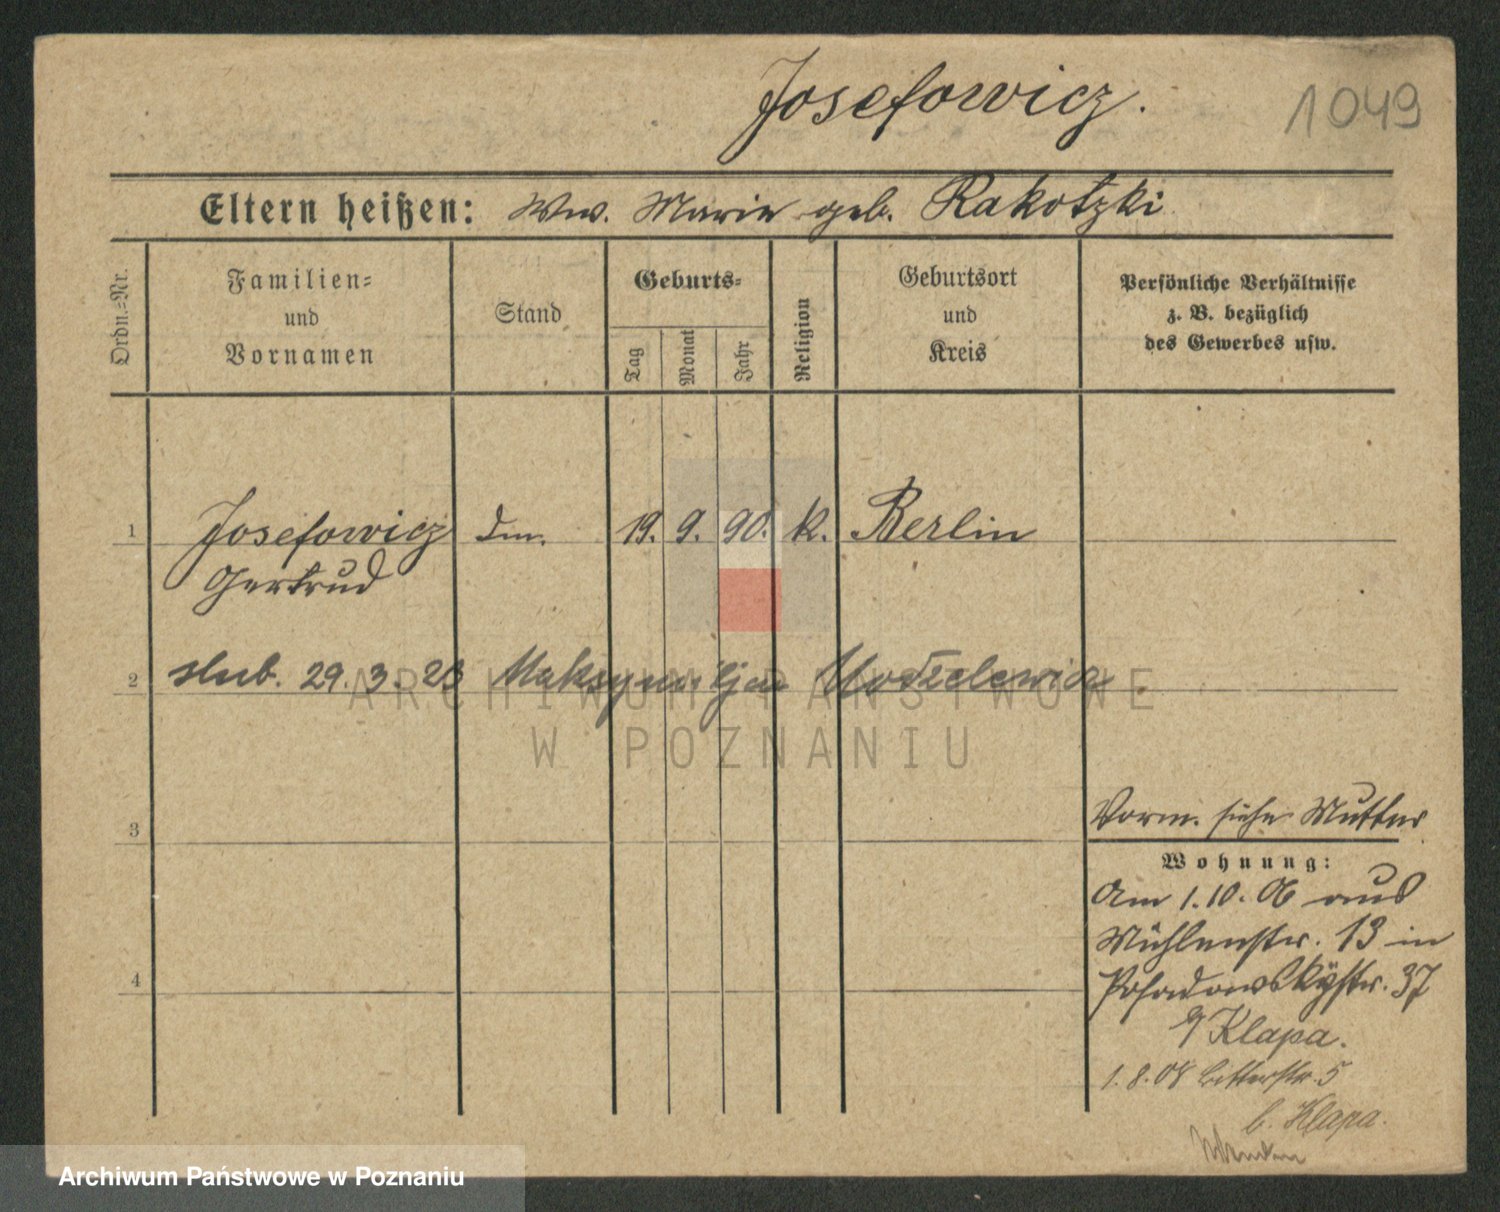 Josefowicz.
1049
Eltern heißen: Ww. Marie geb. Rakotzki
Ordn.-Nr.
Familien-
und
Vornamen
Stand
Geburts-
Tag
Monat
Jahr
Religion
Geburtsort
und
Kreis
Persönliche Verhältnisse
z. B. bezüglich
des Gewerbes usw.
1 Josefowicz 19. 9. 90. k. Berlin
Gertrud
2 slub. 29. 3. 23 Maksymiljan
ARCHIWUM PAŃSTWOWE
W POZNANIU
3
Vorm. siehe Mutter
Wohnung:
Am 1.10.06 aus
Mühlenstr. 13 in
4
Posadowskystr. 37
b/Klapa.
1.8.08 Ritterstr. 5
b. Klapa.
Archiwum Państwowe w Poznaniu